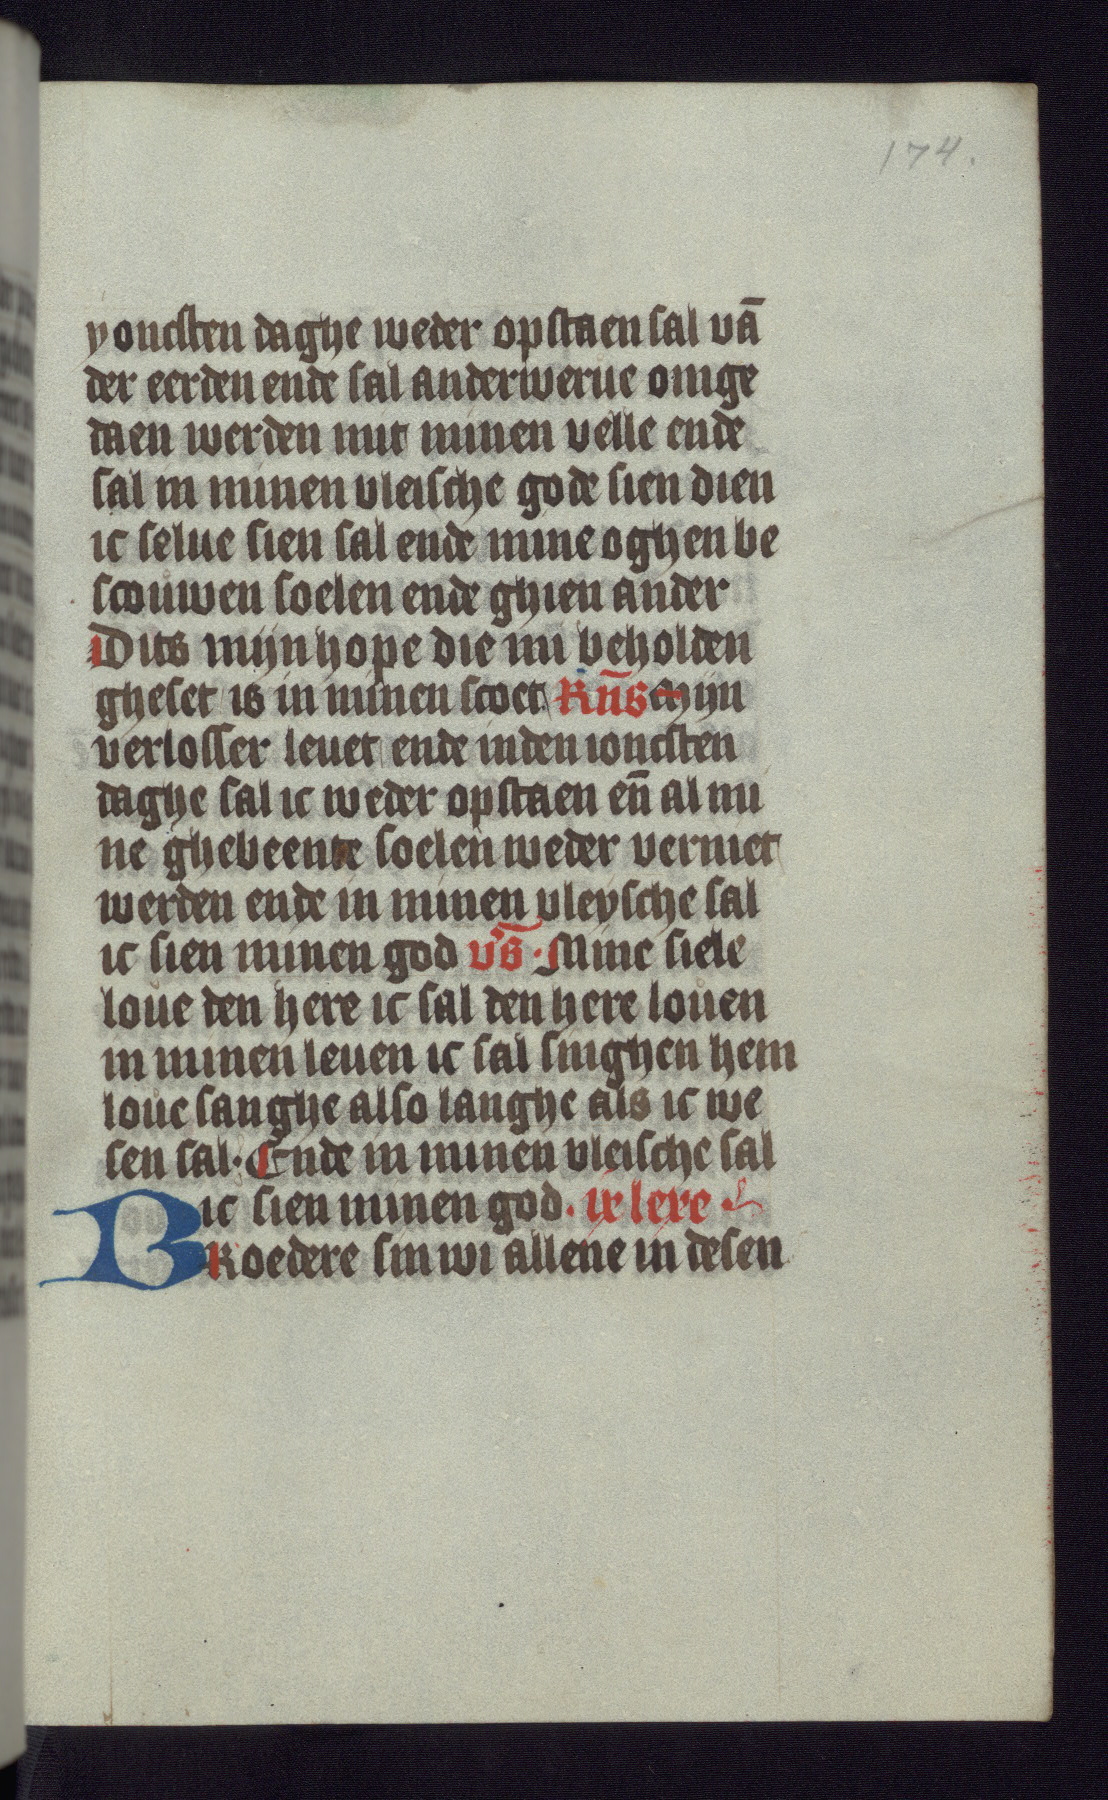 174.
yoncsten daghe weder opstaen sal vā
der eerden ende sal anderwerue omge
daen werden mit minen velle ende
sal in minen vleische gode sien dien
ic selue sien sal ende mine oghen be
scouwen soelen ende ghien ander
Dits mijn hope die mi beholden
gheset is in minen scoet Rn̄s Mijn
verlosser leuet ende inden ioncsten
daghe sal ic weder opstaen en̄ al mi
ne ghebeente soelen weder verniet
werden ende in minen vleysche sal
ic sien minen god vs̄ Mine siele
loue den here ic sal den here louen
in minen leuen ic sal singhen hem
loue sanghe also langhe als ic we
sen sal. Ende in minen vleische sal
ic sien minen god. ix lere
BRoedere sin wi allene in desen